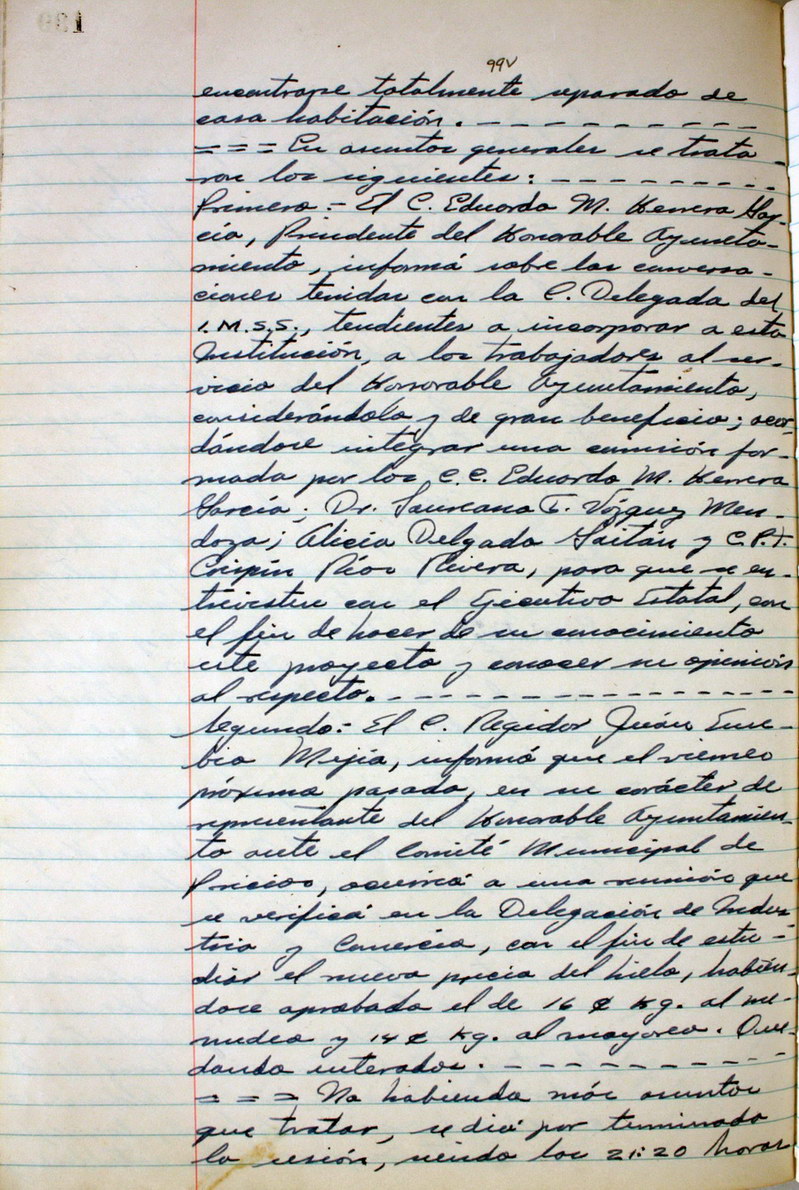 99V
encontrarse totalmente separado de
casa habitación. - - - - - - - - -
= = = En asuntos generales se trata-
ron los siguientes: - - - - - - - -
Primero.- El C. Eduardo M. Herrera Gar-
cía, Presidente del Honorable Ayunta-
miento, informó sobre las conversa-
ciones tenidas con la C. Delegada del
I.M.S.S., tendientes a incorporar a esta
Institución, a los trabajadores al ser-
vicio del Honorable Ayuntamiento,
considerándolo y de gran beneficio; acor-
dándose integrar una comisión for-
mada por los C.C. Eduardo M. Herrera
García; Dr. Laureano T. Vázquez Men-
doza; Alicia Delgado Gaitán y C.P.T.
Crispín Ríos Rivera, para que se en-
trevisten con el Ejecutivo Estatal, con
el fin de hacer de su conocimiento
este proyecto y conocer su opinión
al respecto. - - - - - - - - - - - - - -
Segundo.- El C. Regidor Juán Euse-
bio Mejía, informó que el viernes
próximo pasado, en su carácter de
representante del Honorable Ayuntamien-
to ante el Comité Municipal de
Precios, acurrió a una reunión que
se verificó en la Delegación de Indus-
tria y Comercio, con el fin de estu-
diar el nuevo precio del hielo, habién-
dose aprobado el de 16 ¢ Kg. al me-
nudeo y 14 ¢ Kg. al mayoreo. Que-
dando enterados. - - - - - - - - - -
= = = No habiendo más asuntos
que tratar, se dió por terminada
la sesión, siendo las 21:20 horas